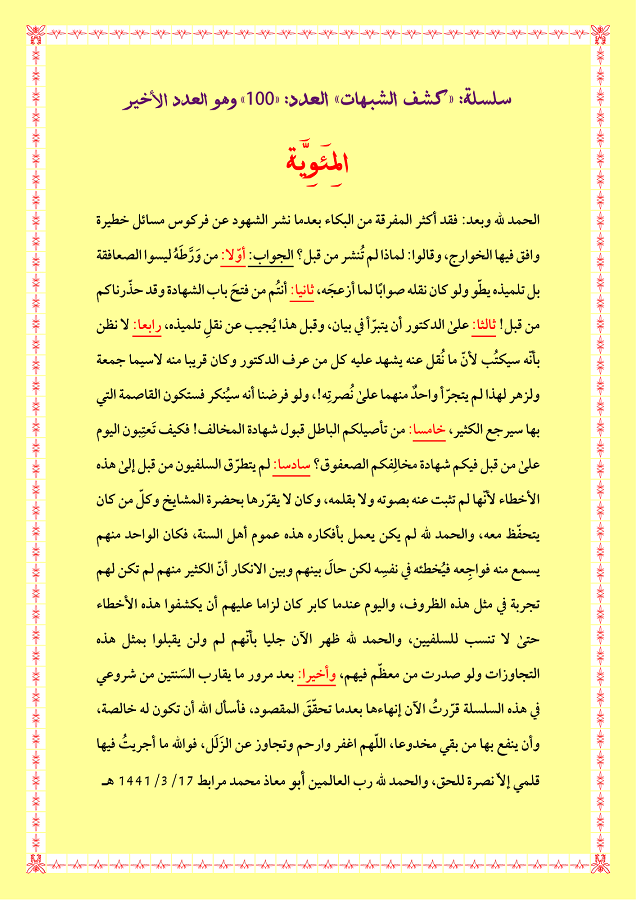 سلسلة: «كشف الشبهات» العدد: «100» وهو العدد الأخير
المِئَوِيَّة
الحمد لله وبعد: فقد أكثر المفرقة من البكاء بعدما نشر الشهود عن فركوس مسائل خطيرة
وافق فيها الخوارج، وقالوا: لماذا لم تُنشر من قبل؟ الجواب: أوّلا: من وَرَّطَهُ ليسوا الصعافقة
بل تلميذه يطّو ولو كان نقله صوابًا لما أزعجَه، ثانيا: أنتُم من فتحَ باب الشهادة وقد حذّرناكم
من قبل! ثالثا: علىٰ الدكتور أن يتبرّأ في بيان، وقبل هذا يُجيب عن نقلِ تلميذه، رابعا: لا نظن
بأنّه سيكتُب لأنّ ما نُقل عنه يشهد عليه كل من عرف الدكتور وكان قريبا منه لاسيما جمعة
ولزهر لهذا لم يتجرّأ واحدٌ منهما علىٰ نُصرتِه!، ولو فرضنا أنه سيُنكر فستكون القاصمة التي
بها سيرجع الكثير، خامسا: من تأصيلكم الباطل قبول شهادة المخالف! فكيف تَعتِبون اليوم
علىٰ من قبل فيكم شهادة مخالِفِكم الصعفوق؟ سادسا: لم يتطرّق السلفيون من قبل إلىٰ هذه
الأخطاء لأنّها لم تثبت عنه بصوته ولا بقلمه، وكان لا يقرّرها بحضرة المشايخ وكلّ من كان
يتحفّظ معه، والحمد لله لم يكن يعمل بأفكاره هذه عموم أهل السنة، فكان الواحد منهم
يسمع منه فواجِعه فيُخطئه في نفسِه لكن حالَ بينهم وبين الانكار أنّ الكثير منهم لم تكن لهم
تجربة في مثل هذه الظروف، واليوم عندما كابر كان لزاما عليهم أن يكشفوا هذه الأخطاء
حتىٰ لا تنسب للسلفيين، والحمد لله ظهر الآن جليا بأنّهم لم ولن يقبلوا بمثل هذه
التجاوزات ولو صدرت من معظّم فيهم، وأخيرا: بعد مرور ما يقارب السَنتين من شروعي
في هذه السلسلة قرّرتُ الآن إنهاءها بعدما تحقّقَ المقصود، فأسأل الله أن تكون له خالصة،
وأن ينفع بها من بقي مخدوعا، اللّهم اغفر وارحم وتجاوز عن الزَلَل، فوالله ما أجريتُ فيها
قلمي إلاّ نصرة للحق، والحمد لله رب العالمين أبو معاذ محمد مرابط 17/ 3/ 1441 هـ